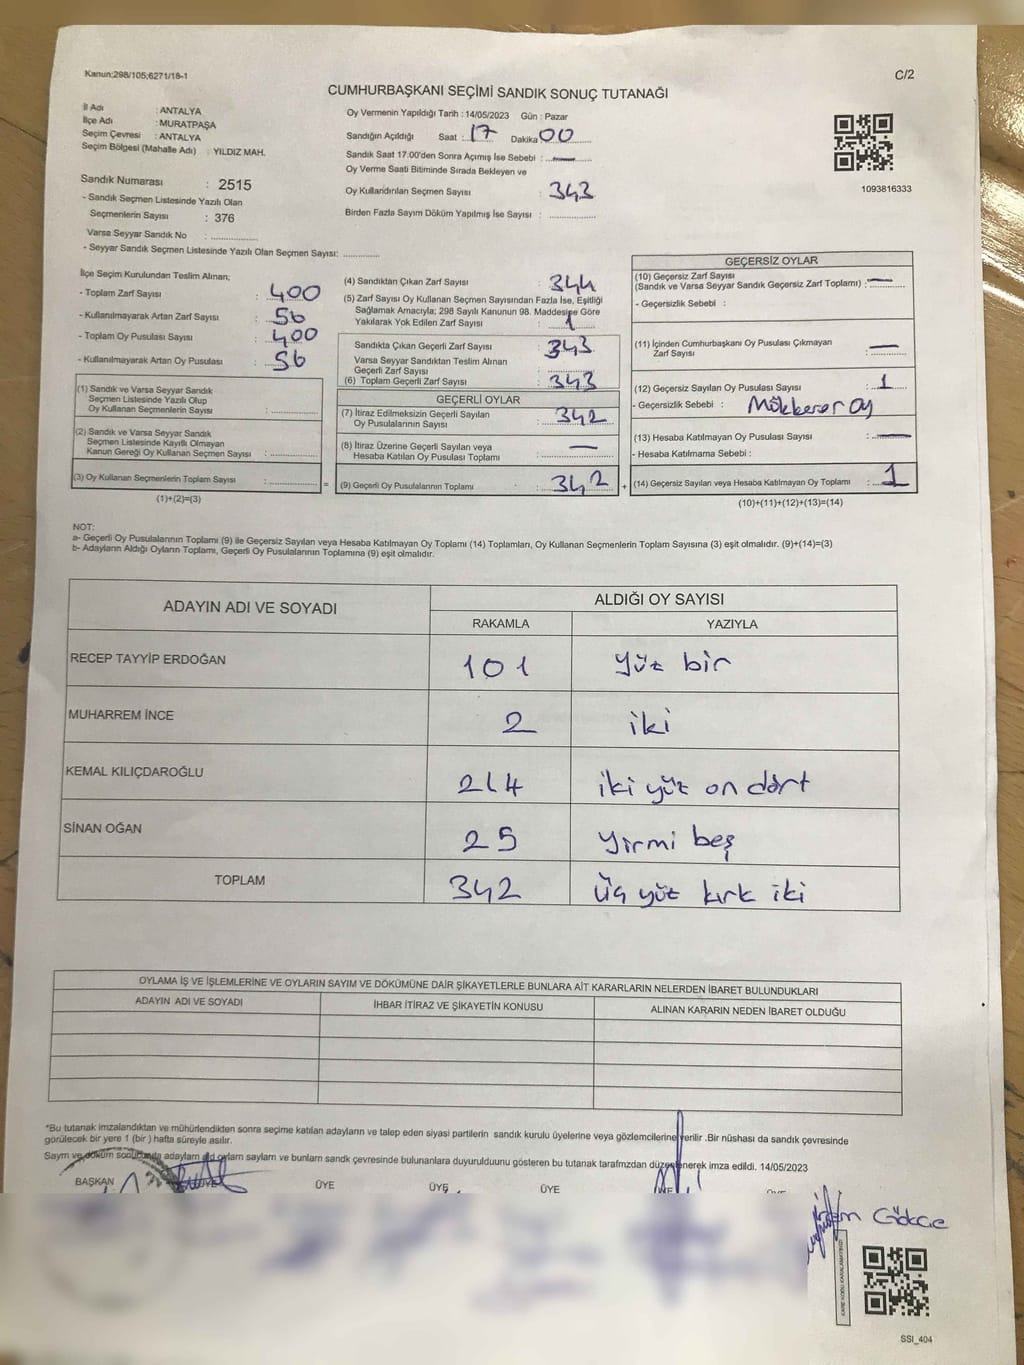 Kanun:298/105;6271/18-1
C/2
CUMHURBAŞKANI SEÇİMİ SANDIK SONUÇ TUTANAĞI
İl Adı : ANTALYA
İlçe Adı : MURATPAŞA
Seçim Çevresi : ANTALYA
Seçim Bölgesi (Mahalle Adı) : YILDIZ MAH.
Sandık Numarası : 2515
- Sandık Seçmen Listesinde Yazılı Olan
Seçmenlerin Sayısı : 376
Varsa Seyyar Sandık No :
- Seyyar Sandık Seçmen Listesinde Yazılı Olan Seçmen Sayısı:
Oy Vermenin Yapıldığı Tarih : 14/05/2023 Gün : Pazar
Sandığın Açıldığı Saat : 17 Dakika 00
Sandık Saat 17:00'den Sonra Açımış İse Sebebi : —
Oy Verme Saati Bitiminde Sırada Bekleyen ve
Oy Kullandırılan Seçmen Sayısı : 343
Birden Fazla Sayım Döküm Yapılmış İse Sayısı :
1093816333
İlçe Seçim Kurulundan Teslim Alınan;
- Toplam Zarf Sayısı : 400
- Kullanılmayarak Artan Zarf Sayısı : 56
- Toplam Oy Pusulası Sayısı : 400
- Kullanılmayarak Artan Oy Pusulası : 56
(1) Sandık ve Varsa Seyyar Sandık
Seçmen Listesinde Yazılı Olup
Oy Kullanan Seçmenlerin Sayısı :
(2) Sandık ve Varsa Seyyar Sandık
Seçmen Listesinde Kayıtlı Olmayan
Kanun Gereği Oy Kullanan Seçmen Sayısı :
(3) Oy Kullanan Seçmenlerin Toplam Sayısı : =
(1)+(2)=(3)
(4) Sandıktan Çıkan Zarf Sayısı : 344
(5) Zarf Sayısı Oy Kullanan Seçmen Sayısından Fazla İse, Eşitliği
Sağlamak Amacıyla; 298 Sayılı Kanunun 98. Maddesine Göre
Yakılarak Yok Edilen Zarf Sayısı : 1
Sandıkta Çıkan Geçerli Zarf Sayısı : 343
Varsa Seyyar Sandıktan Teslim Alınan
Geçerli Zarf Sayısı :
(6) Toplam Geçerli Zarf Sayısı : 343
GEÇERLİ OYLAR
(7) İtiraz Edilmeksizin Geçerli Sayılan
Oy Pusulalarının Sayısı : 342
(8) İtiraz Üzerine Geçerli Sayılan veya
Hesaba Katılan Oy Pusulası Toplamı : —
(9) Geçerli Oy Pusulalarının Toplamı : 342 +
GEÇERSİZ OYLAR
(10) Geçersiz Zarf Sayısı
(Sandık ve Varsa Seyyar Sandık Geçersiz Zarf Toplamı) : —
- Geçersizlik Sebebi :
(11) İçinden Cumhurbaşkanı Oy Pusulası Çıkmayan
Zarf Sayısı : —
(12) Geçersiz Sayılan Oy Pusulası Sayısı : 1
- Geçersizlik Sebebi : Mükkerer oy
(13) Hesaba Katılmayan Oy Pusulası Sayısı : —
- Hesaba Katılmama Sebebi :
(14) Geçersiz Sayılan veya Hesaba Katılmayan Oy Toplamı : 1
(10)+(11)+(12)+(13)=(14)
NOT:
a- Geçerli Oy Pusulalarının Toplamı (9) ile Geçersiz Sayılan veya Hesaba Katılmayan Oy Toplamı (14) Toplamları, Oy Kullanan Seçmenlerin Toplam Sayısına (3) eşit olmalıdır. (9)+(14)=(3)
b- Adayların Aldığı Oyların Toplamı, Geçerli Oy Pusulalarının Toplamına (9) eşit olmalıdır.
ADAYIN ADI VE SOYADI ALDIĞI OY SAYISI
RAKAMLA YAZIYLA
RECEP TAYYİP ERDOĞAN 101 yüz bir
MUHARREM İNCE 2 iki
KEMAL KILIÇDAROĞLU 214 iki yüz on dört
SİNAN OĞAN 25 yirmi beş
TOPLAM 342 üç yüz kırk iki
OYLAMA İŞ VE İŞLEMLERİNE VE OYLARIN SAYIM VE DÖKÜMÜNE DAİR ŞİKAYETLERLE BUNLARA AİT KARARLARIN NELERDEN İBARET BULUNDUKLARI
ADAYIN ADI VE SOYADI İHBAR İTİRAZ VE ŞİKAYETİN KONUSU ALINAN KARARIN NEDEN İBARET OLDUĞU
*Bu tutanak imzalandıktan ve mühürlendikten sonra seçime katılan adayların ve talep eden siyasi partilerin sandık kurulu üyelerine veya gözlemcilerine verilir .Bir nüshası da sandık çevresinde
görülecek bir yere 1 (bir ) hafta süreyle asılır.
Sayım ve döküm sonucunda adayların aldı oyların sayılarn ve bunların sandk çevresinde bulunanlara duyurulduunu gösteren bu tutanak tarafmzdan düzenlenerek imza edildi. 14/05/2023
BAŞKAN ÜYE ÜYE ÜYE ÜYE
Gökce
SSI_404